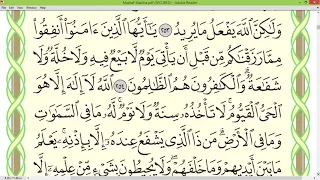 وَلَٰكِنَّ ٱللَّهَ يَفْعَلُ مَا يُرِيدُ ٢٥٣ يَٰٓأَيُّهَا ٱلَّذِينَ ءَامَنُوٓا۟ أَنفِقُوا۟
مِمَّا رَزَقْنَٰكُم مِّن قَبْلِ أَن يَأْتِىَ يَوْمٌ لَّا بَيْعٌ فِيهِ وَلَا خُلَّةٌ وَلَا
شَفَٰعَةٌ ۗ وَٱلْكَٰفِرُونَ هُمُ ٱلظَّٰلِمُونَ ٢٥٤ ٱللَّهُ لَآ إِلَٰهَ إِلَّا هُوَ
ٱلْحَىُّ ٱلْقَيُّومُ ۚ لَا تَأْخُذُهُۥ سِنَةٌ وَلَا نَوْمٌ ۚ لَّهُۥ مَا فِى ٱلسَّمَٰوَٰتِ
وَمَا فِى ٱلْأَرْضِ ۗ مَن ذَا ٱلَّذِى يَشْفَعُ عِندَهُۥٓ إِلَّا بِإِذْنِهِۦ ۚ يَعْلَمُ
مَا بَيْنَ أَيْدِيهِمْ وَمَا خَلْفَهُمْ ۖ وَلَا يُحِيطُونَ بِشَىْءٍ مِّنْ عِلْمِهِۦٓ إِلَّا